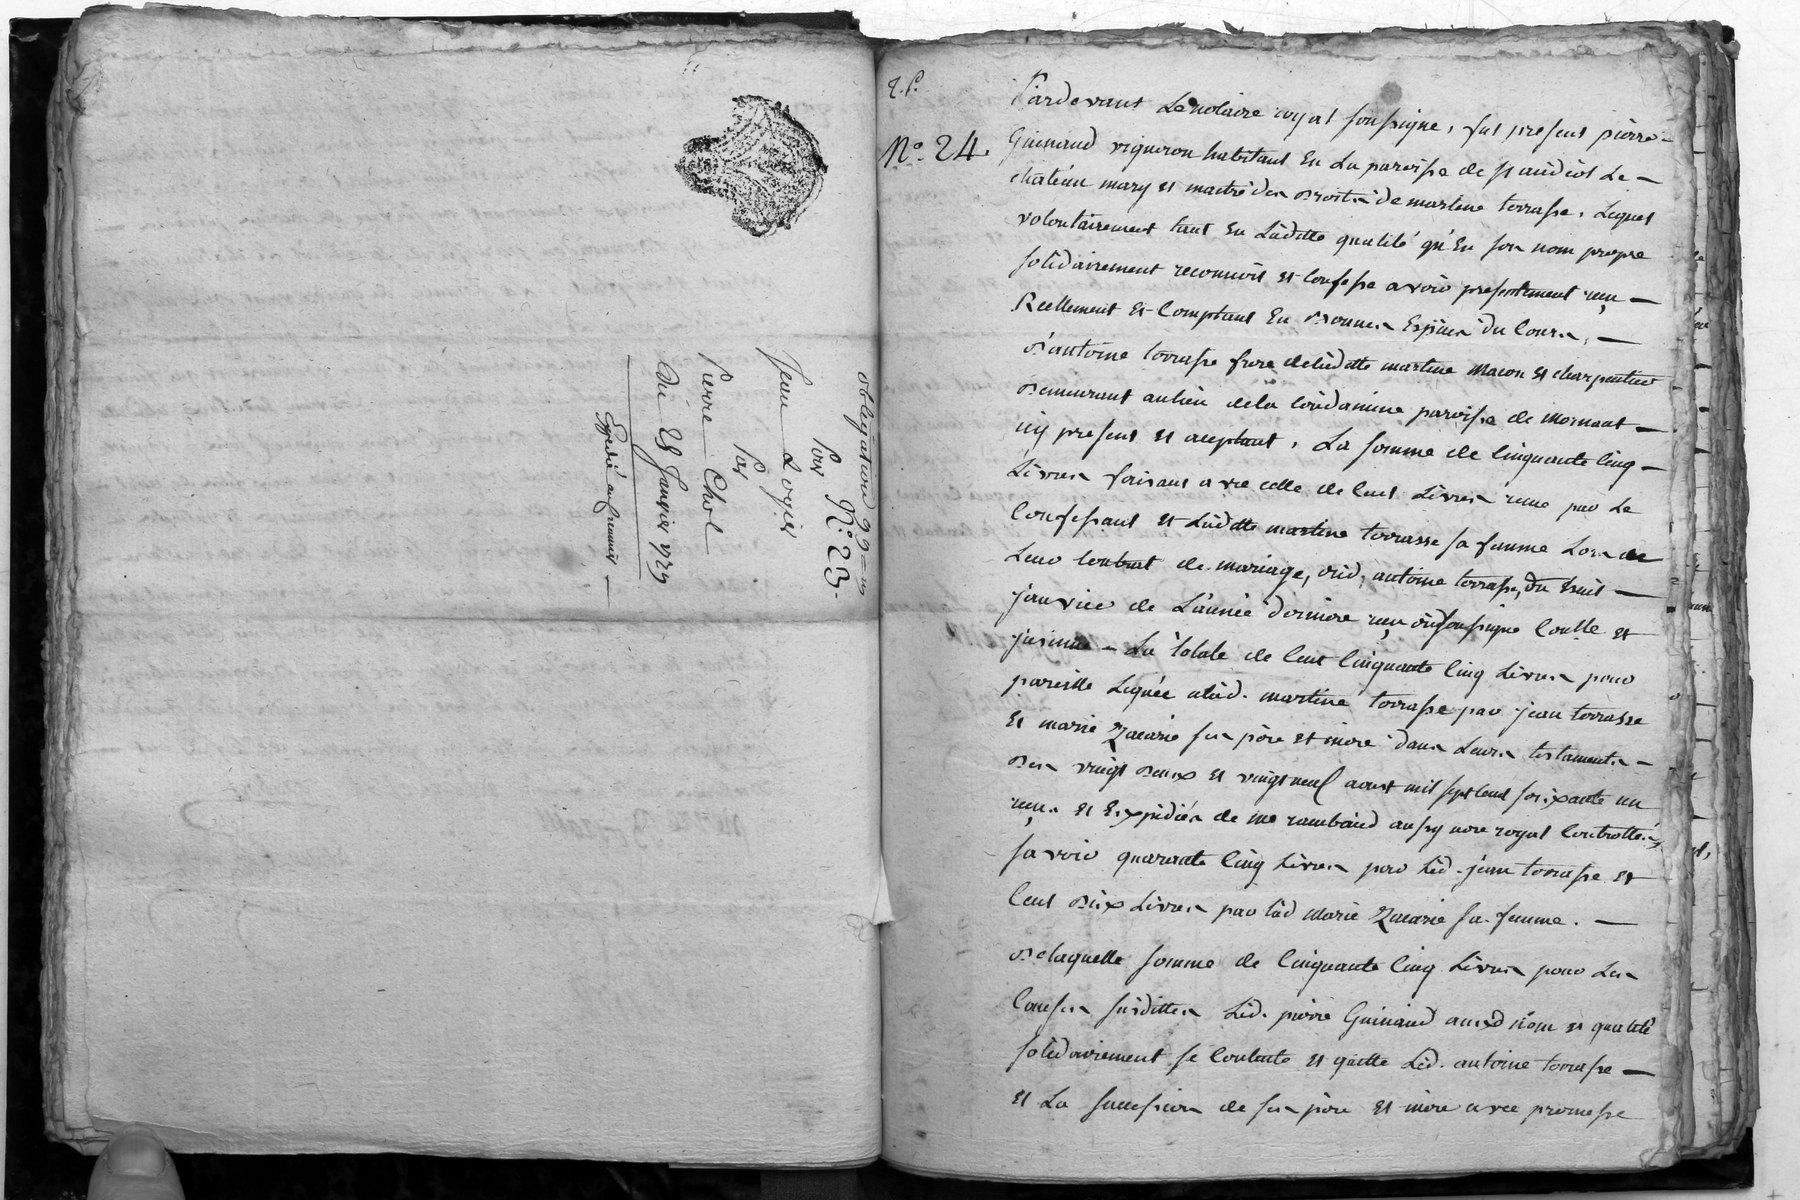 obligation
N.° 23.
Pour
Jean Logier
Par
Pierre Chol
Du 25 Janvier 1729
Expedié au premier
2. P.
N.° 24.
Pardevant Le notaire royal soussigné, fut present pierre
Guinaud vigneron habitant En La paroisse de st andéol Le
château mary et maitre des Droits de martine terrasse, Lequel
volontairement tant En Ladite qualité qu'En son nom propre
solidairement reconnoit et Confesse avoir presentement reçu
Reellement Et Comptant En Bonnes Espèces du Cours,
D'antoine terrasse frere deladitte martine Macon et charpentier
Demeurant au lieu dela paroisse de Mornant
icy present et acceptant, La somme de Cinquante Cinq
Livres faisant avec celle de Cent Livres reçue par Le
Confessant et Laditte martine terrasse sa femme Lors de
Leur Contrat de mariage, dud. antoine terrasse, du huit
janvier de L'année derniere reçu dud. soussigné Conllé et
jnsinué La totale de Cent Cinquante Cinq Livres pour
pareille Léguée alad. martine terrasse par jean terrasse
Et marie Zacarie ses père et mère dans Leurs testaments
Des vingt Deux et vingt neuf aoust mil sept Cent soixante un
reçus et Expédiés de me rambaud aussy nore royal Controllés,
savoir quarante Cinq Livres par Led. jean terrasse et
Cent Dix Livres par lad Marie Zacarie sa femme.
Delaquelle somme de Cinquante Cinq Livres pour Les
Causes susdittes Led. pierre Guinaud ausd nom et qualité
solidairement se Contente et quitte Led. antoine terrasse
et La succession de ses père et mère avec promesse